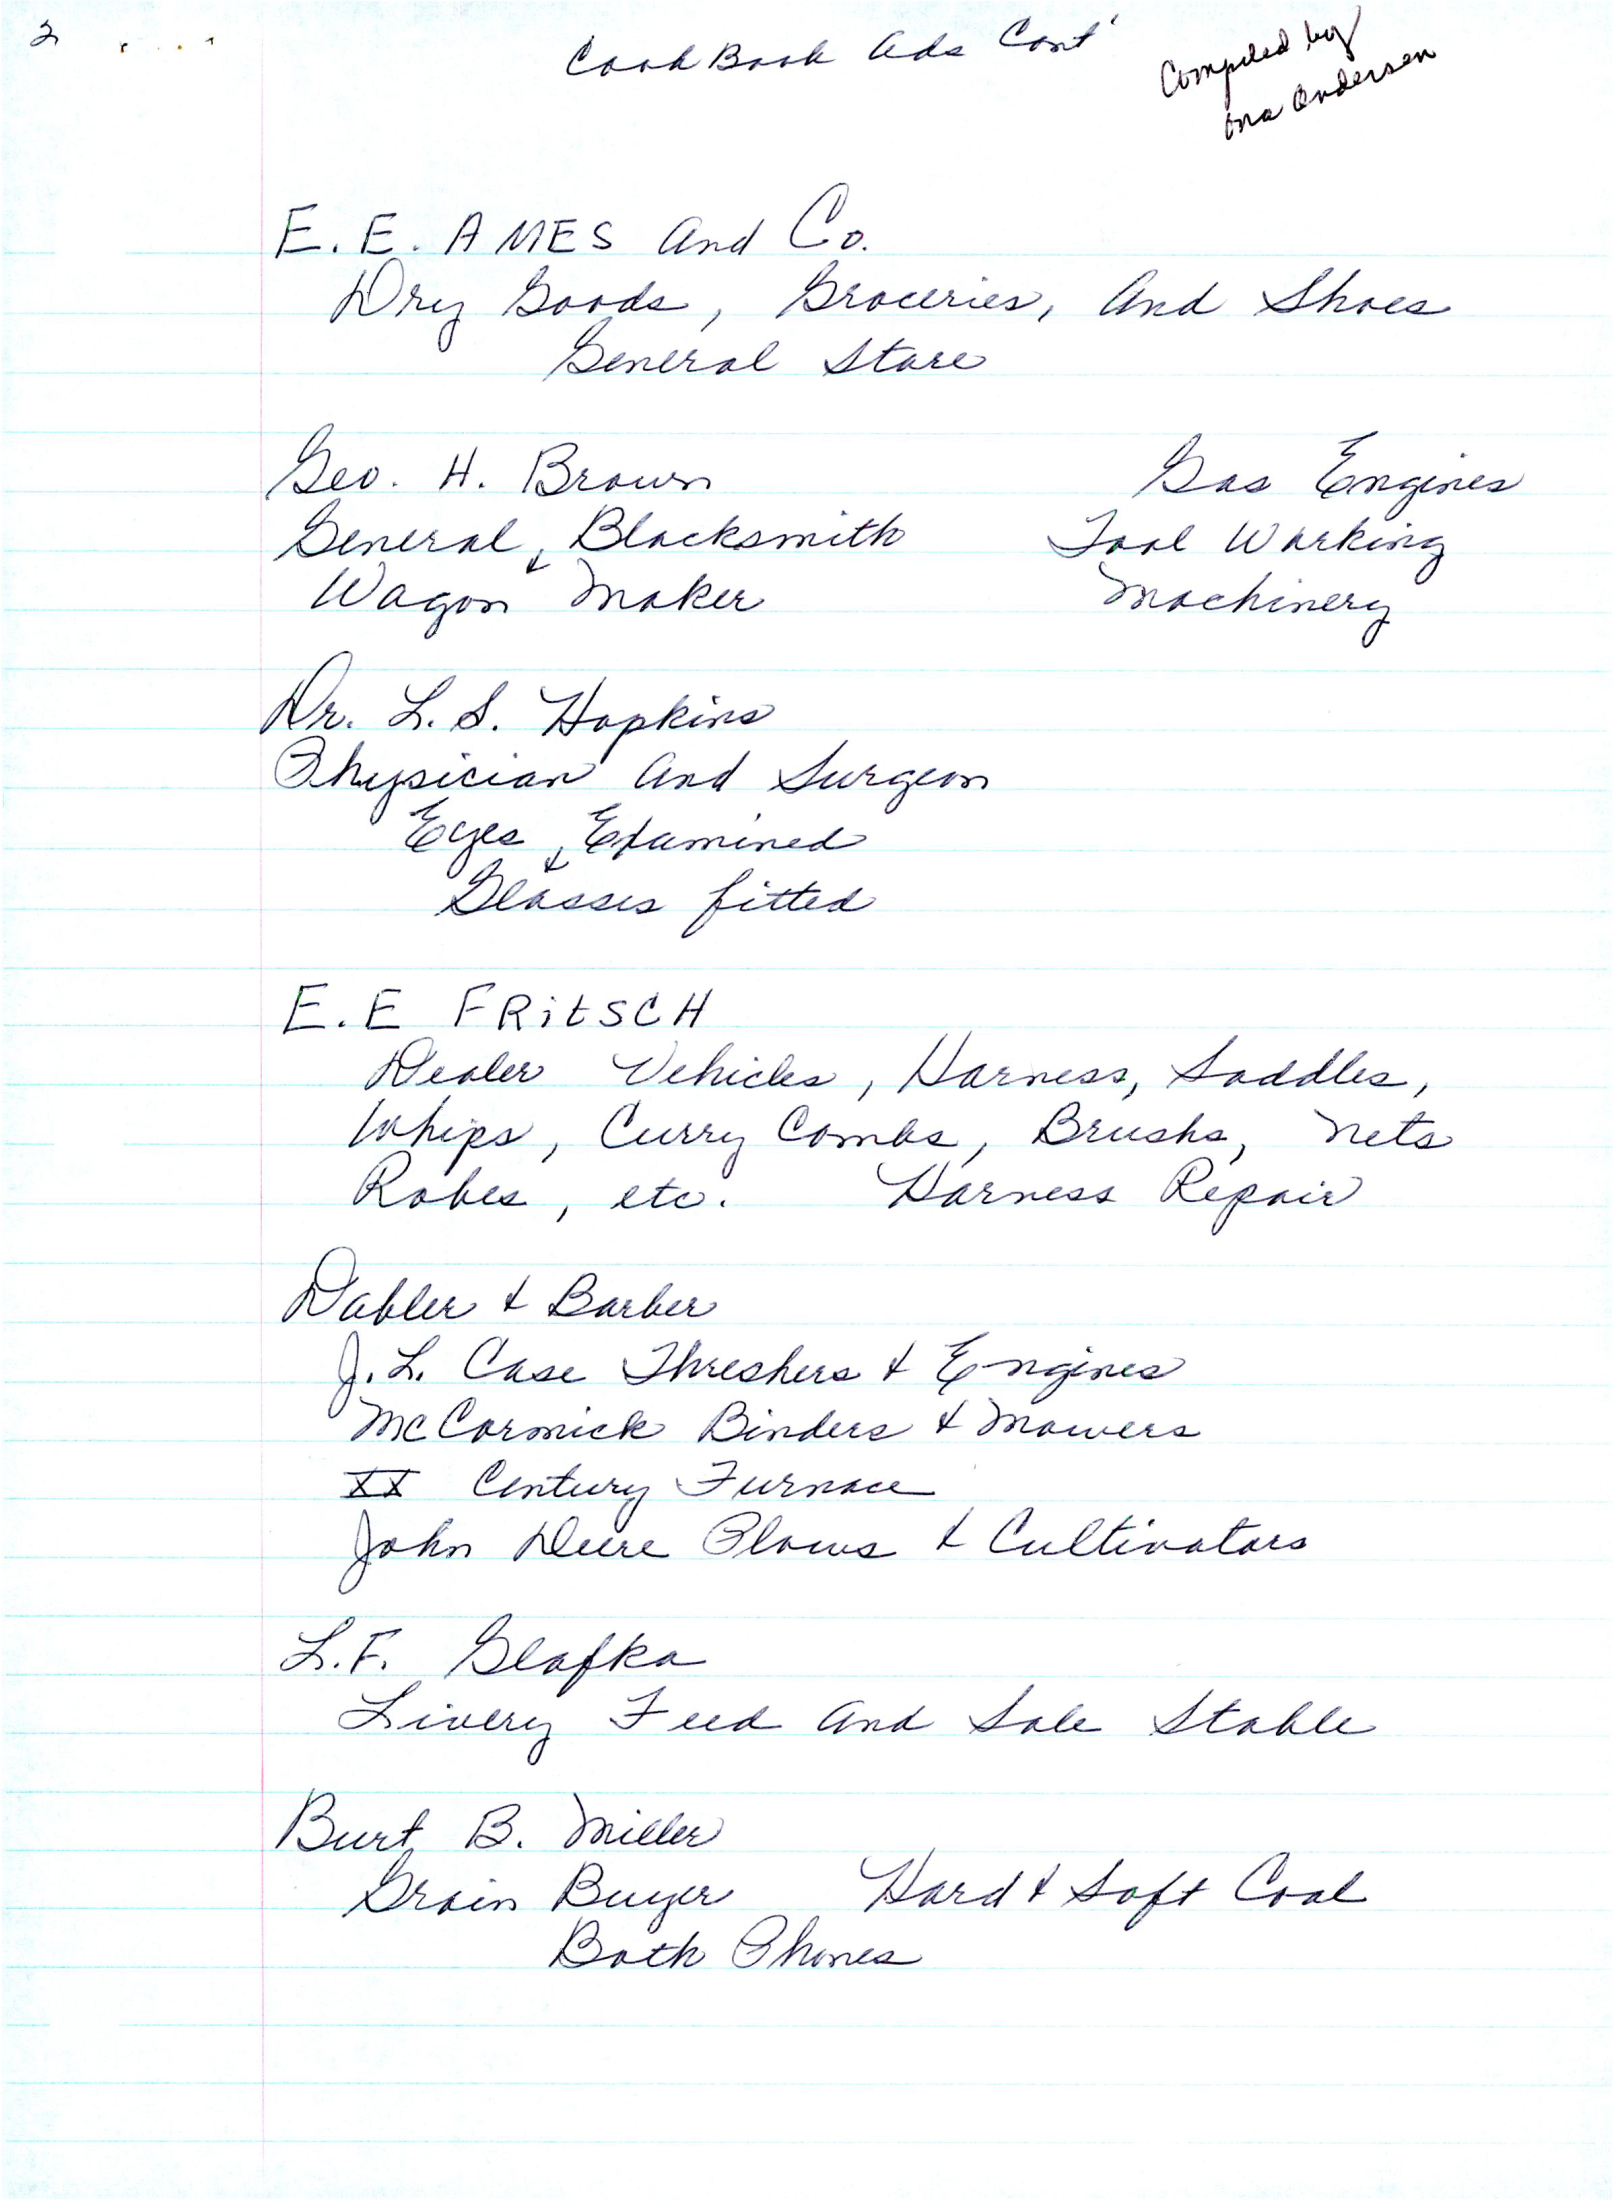 2
Cook Book Ads Cont'
Compiled by
Ona Andersen
E. E. AMES and Co.
Dry Goods, Groceries, And Shoes
General Store
Geo. H. Brown
General & Blacksmith
Wagon Maker
Gas Engines
Tool Working
Machinery
Dr. L. S. Hopkins
Physician and Surgeon
Eyes & Examined
Glasses fitted
E. E FRitSCH
Dealer Vehicles, Harness, Saddles,
Whips, Curry Combs, Brushs, Nets
Robes, etc. Harness Repair
Dabler & Barber
J. L. Case Threshers & Engines
McCormick Binders & Mowers
XX Century Furnace
John Deere Plows & Cultivators
L. F. Glafka
Livery Feed and Sale Stable
Burt B. Miller
Grain Buyer Hard & Soft Coal
Both Phones